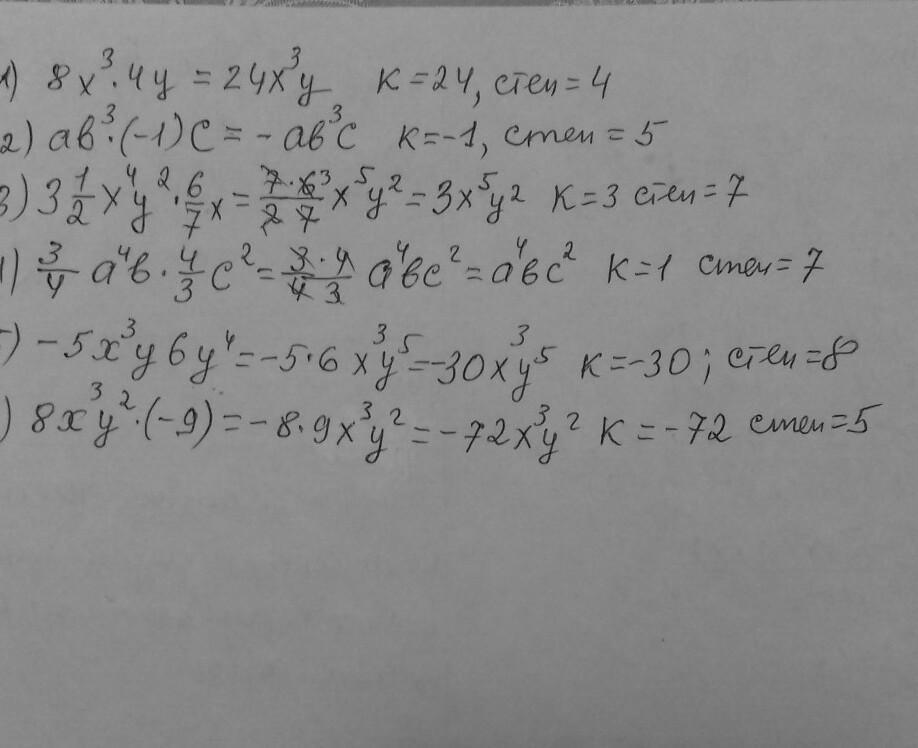 1) 8x³·4y = 24x³y K=24, степ=4
2) ab³·(-1)c = -ab³c K=-1, степ=5
3) 3 1/2 x⁴y²·6/7 x = 7·6³/2 7 x⁵y² = 3x⁵y² K=3 степ=7
) 3/4 a⁴b·4/3 c² = 3·4/4 3 a⁴bc² = a⁴bc² K=1 степ=7
) -5x³y6y⁴ = -5·6x³y⁵ = -30x³y⁵ K=-30; степ=8
) 8x³y²·(-9) = -8·9x³y² = -72x³y² K=-72 степ=5